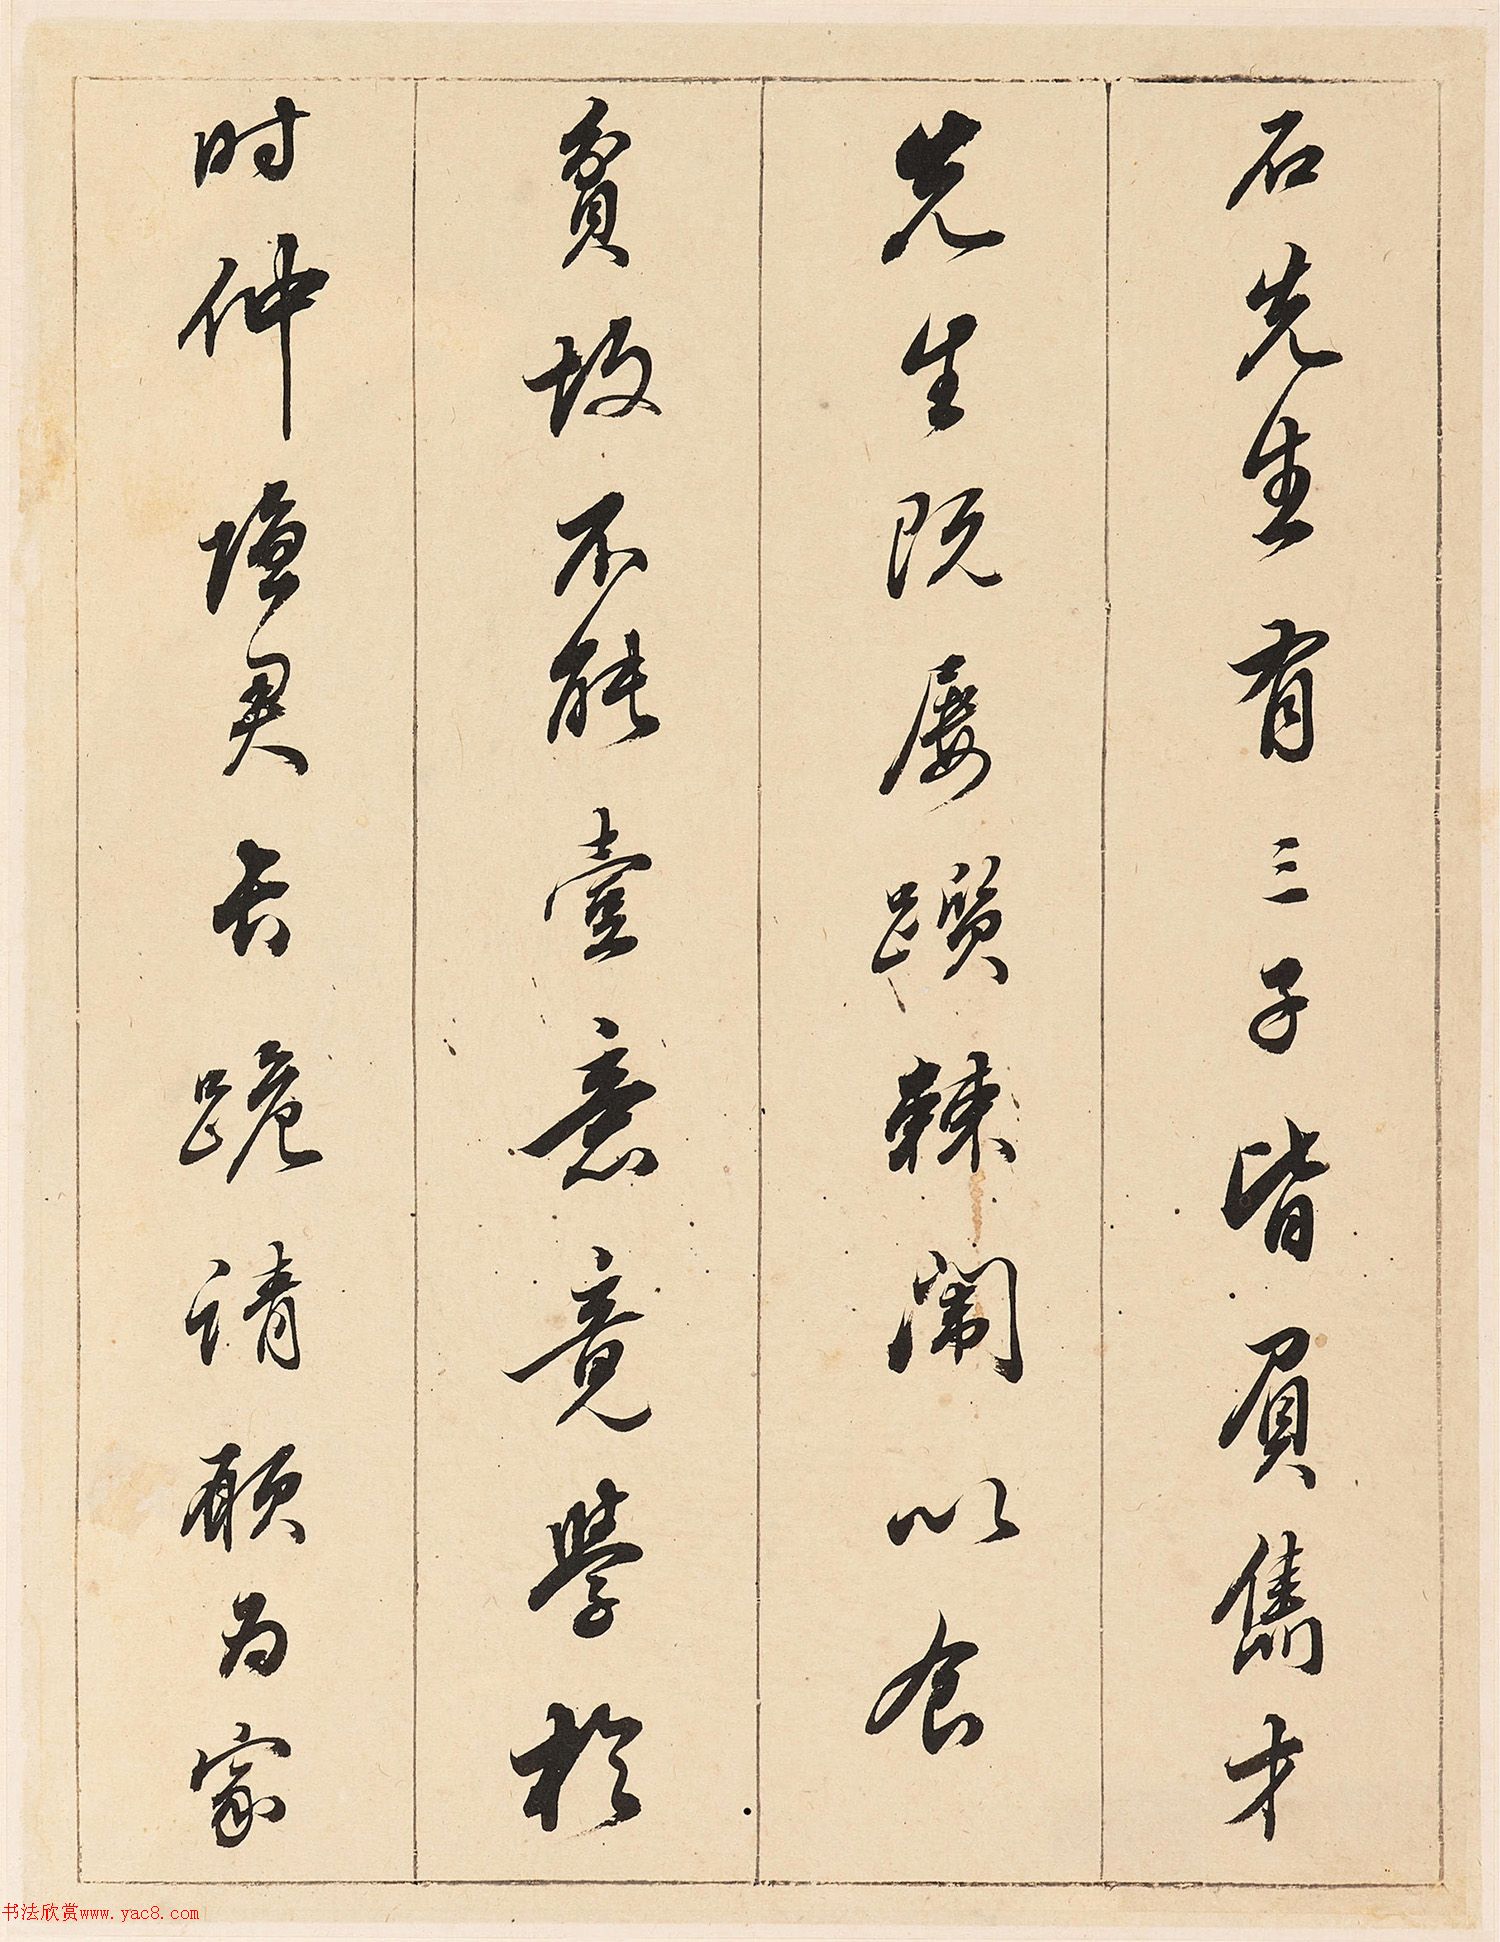 石先生有三子皆負雋才
先生既屢躓棘闈以食
貧故不能壹意竟學於
时仲隱君长跪请願为家
书法欣赏www.yac8.com